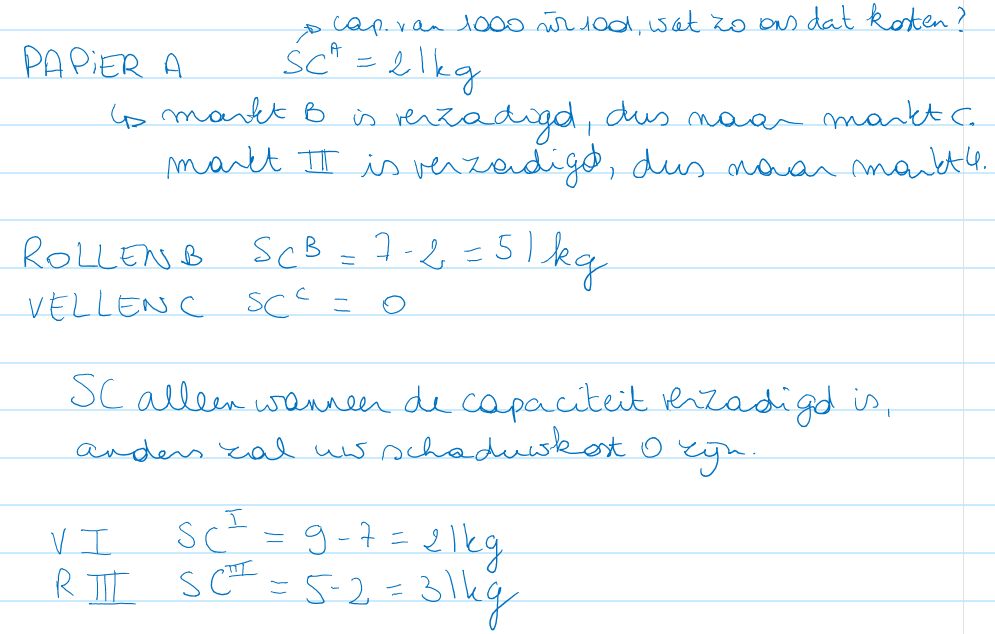 ↳ cap. van 1000 nr 1001, wat zo ons dat kosten?
PAPIER A SC^A = 2/kg
↳ markt B is verzadigd, dus naar markt C.
markt III is verzadigd, dus naar markt 4.
ROLLEN B SC^B = 7-2 = 5/kg
VELLEN C SC^C = 0
SC alleen wanneer de capaciteit verzadigd is,
anders zal uw schaduwkost 0 zijn.
V I SC^I = 9-7 = 2/kg
R III SC^III = 5-2 = 3/kg